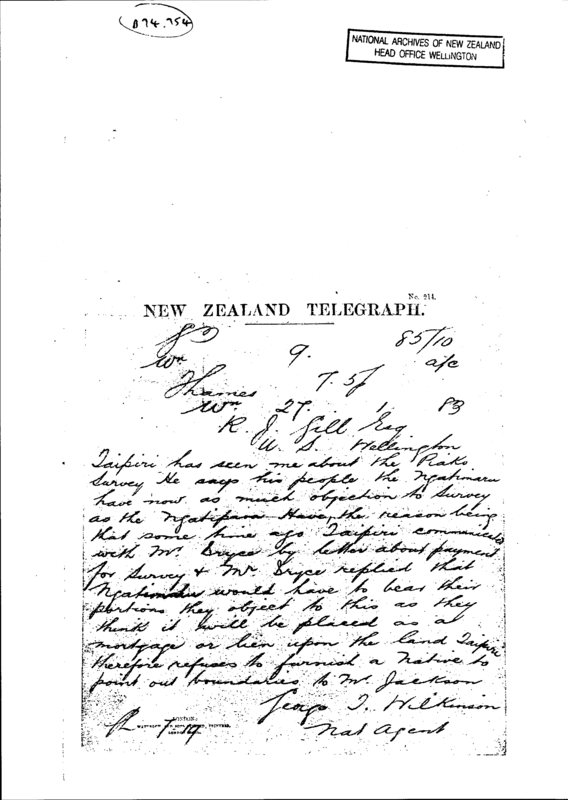 NATIONAL ARCHIVES OF NEW ZEALAND
HEAD OFFICE WELLINGTON
No. 914.
NEW ZEALAND TELEGRAPH.
9. 85/10
Wn a/c
Thames 7.5f
Wn 27. 1. 83
R. J. Gill Esq
U. S. Wellington
Taipiri has seen me about the Piako
Survey He says his people the Ngatimaru
have now as much objection to Survey
as the Ngatipaoa Have, the reason being
that some time ago Taipiri communicated
with Mr. Bryce by letter about payment
for Survey & Mr Bryce replied that
Ngatimaru would have to bear their
portions they object to this as they
think it will be placed as a
mortgage or lien upon the land Taipiri
therefore refuses to furnish a Native to
point out boundaries to Mr. Jackson
George T. Wilkinson
Nat Agent